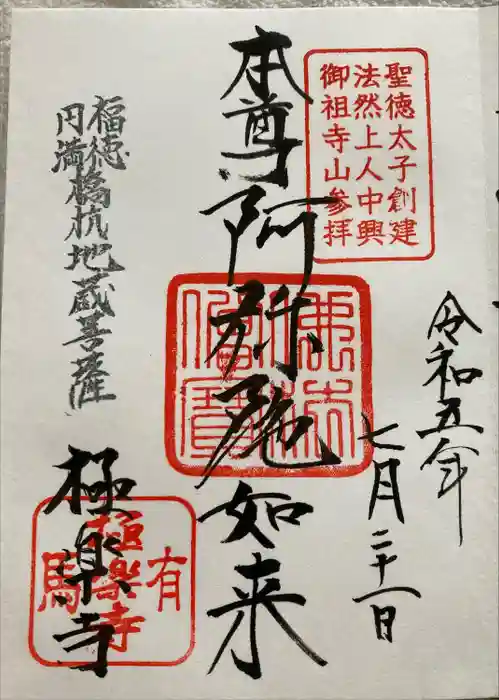 聖徳太子創建
法然上人中興
御祖寺山参拝
令和五年
七月二十一日
本尊阿弥陀如来
佛法僧寳
福徳
円満
橋杭地蔵菩薩
極楽寺
有馬
極楽寺